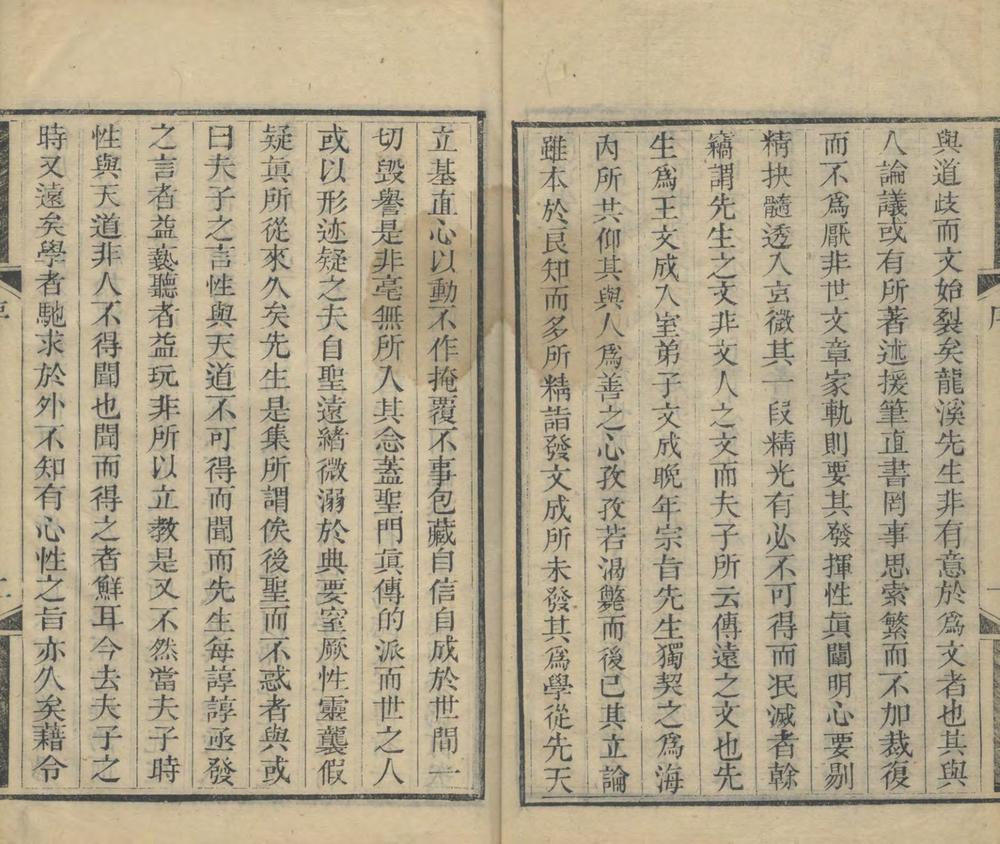 與道歧而文始裂矣龍溪先生非有意於爲文者也其與
人論議或有所著述援筆直書罔事思索繁而不加裁復
而不爲厭非世文章家軌則要其發揮性眞闡明心要剔
精抉髓透入玄微其一段精光有必不可得而泯滅者榦
竊謂先生之文非文人之文而夫子所云傳遠之文也先
生爲王文成入室弟子文成晚年宗旨先生獨契之爲海
內所共仰其與人爲善之心孜孜若渴斃而後已其立論
雖本於良知而多所精詣發文成所未發其爲學從先天
立基直心以動不作掩覆不事包藏自信自成於世間一
切毀譽是非毫無所入其念蓋聖門眞傳的派而世之人
或以形迹疑之夫自聖遠緒微溺於典要窒厥性靈襲假
疑眞所從來久矣先生是集所謂俟後聖而不惑者與或
曰夫子之言性與天道不可得而聞而先生每諄諄亟發
之言者益褻聽者益玩非所以立教是又不然當夫子時
性與天道非人不得聞也聞而得之者鮮耳今去夫子之
時又遠矣學者馳求於外不知有心性之旨亦久矣藉令
序